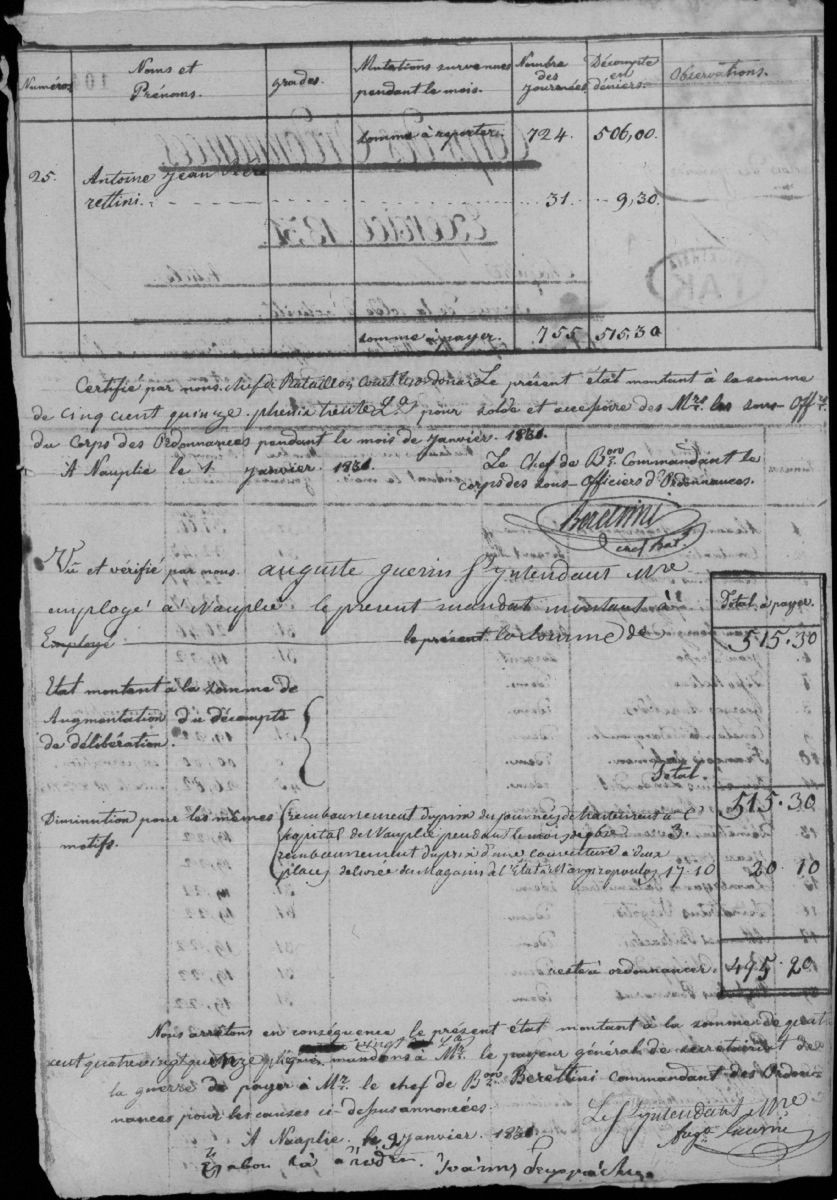 Numéros Noms et Prénoms. grades. Mutations survenues pendant le mois. Nombre des journées. Décompte en deniers. Observations.
somme à reporter. 724. 506,00.
25. Antoine Jean
rettini. 31. 9,30.
somme à payer. 755. 515,30
Certifié par nous chef de Bataillon Le présent état montant à la somme
de cinq cent quinze phenix trente pour solde et accessoire des Mres les sous-Offrs
du Corps des Ordonnances pendant le mois de janvier. 1831.
A Nauplie le 1 janvier. 1831.
Le Chef de Bon Commandant le
corps des sous-officiers d'Ordonnances.
Berettini
chef Bat.
Vu et vérifié par nous auguste guerin Sr yntendant Mre
employé à Nauplie le présent mandat montant à
Employé le présent la somme de
Total à payer.
515.30
Etat montant à la somme de
Augmentation du décompte
de délibération.
Total.
515.30
Diminution pour les mêmes
motifs.
remboursement du prix du journées de traitement à l'
hopital de Nauplie pendant le mois de 3.
remboursement du prix d'une couverture à deux
places delivrée du Magasin de l'Etat à 17.10
20.10
reste à ordonnancer. 495.20
Nous arrêtons en conséquence le présent état montant à la somme de quatre
vingt
cent quatre vingt quinze mandons à Mr. le payeur général de secretariat de
la guerre de payer à Mr. le chef de Bon Berettini commandant des Ordon-
nances pour les causes ci-dessus annoncées.
A Nauplie. le 2 janvier. 1831
Le Sr yntendant Mre
Augte Guerin